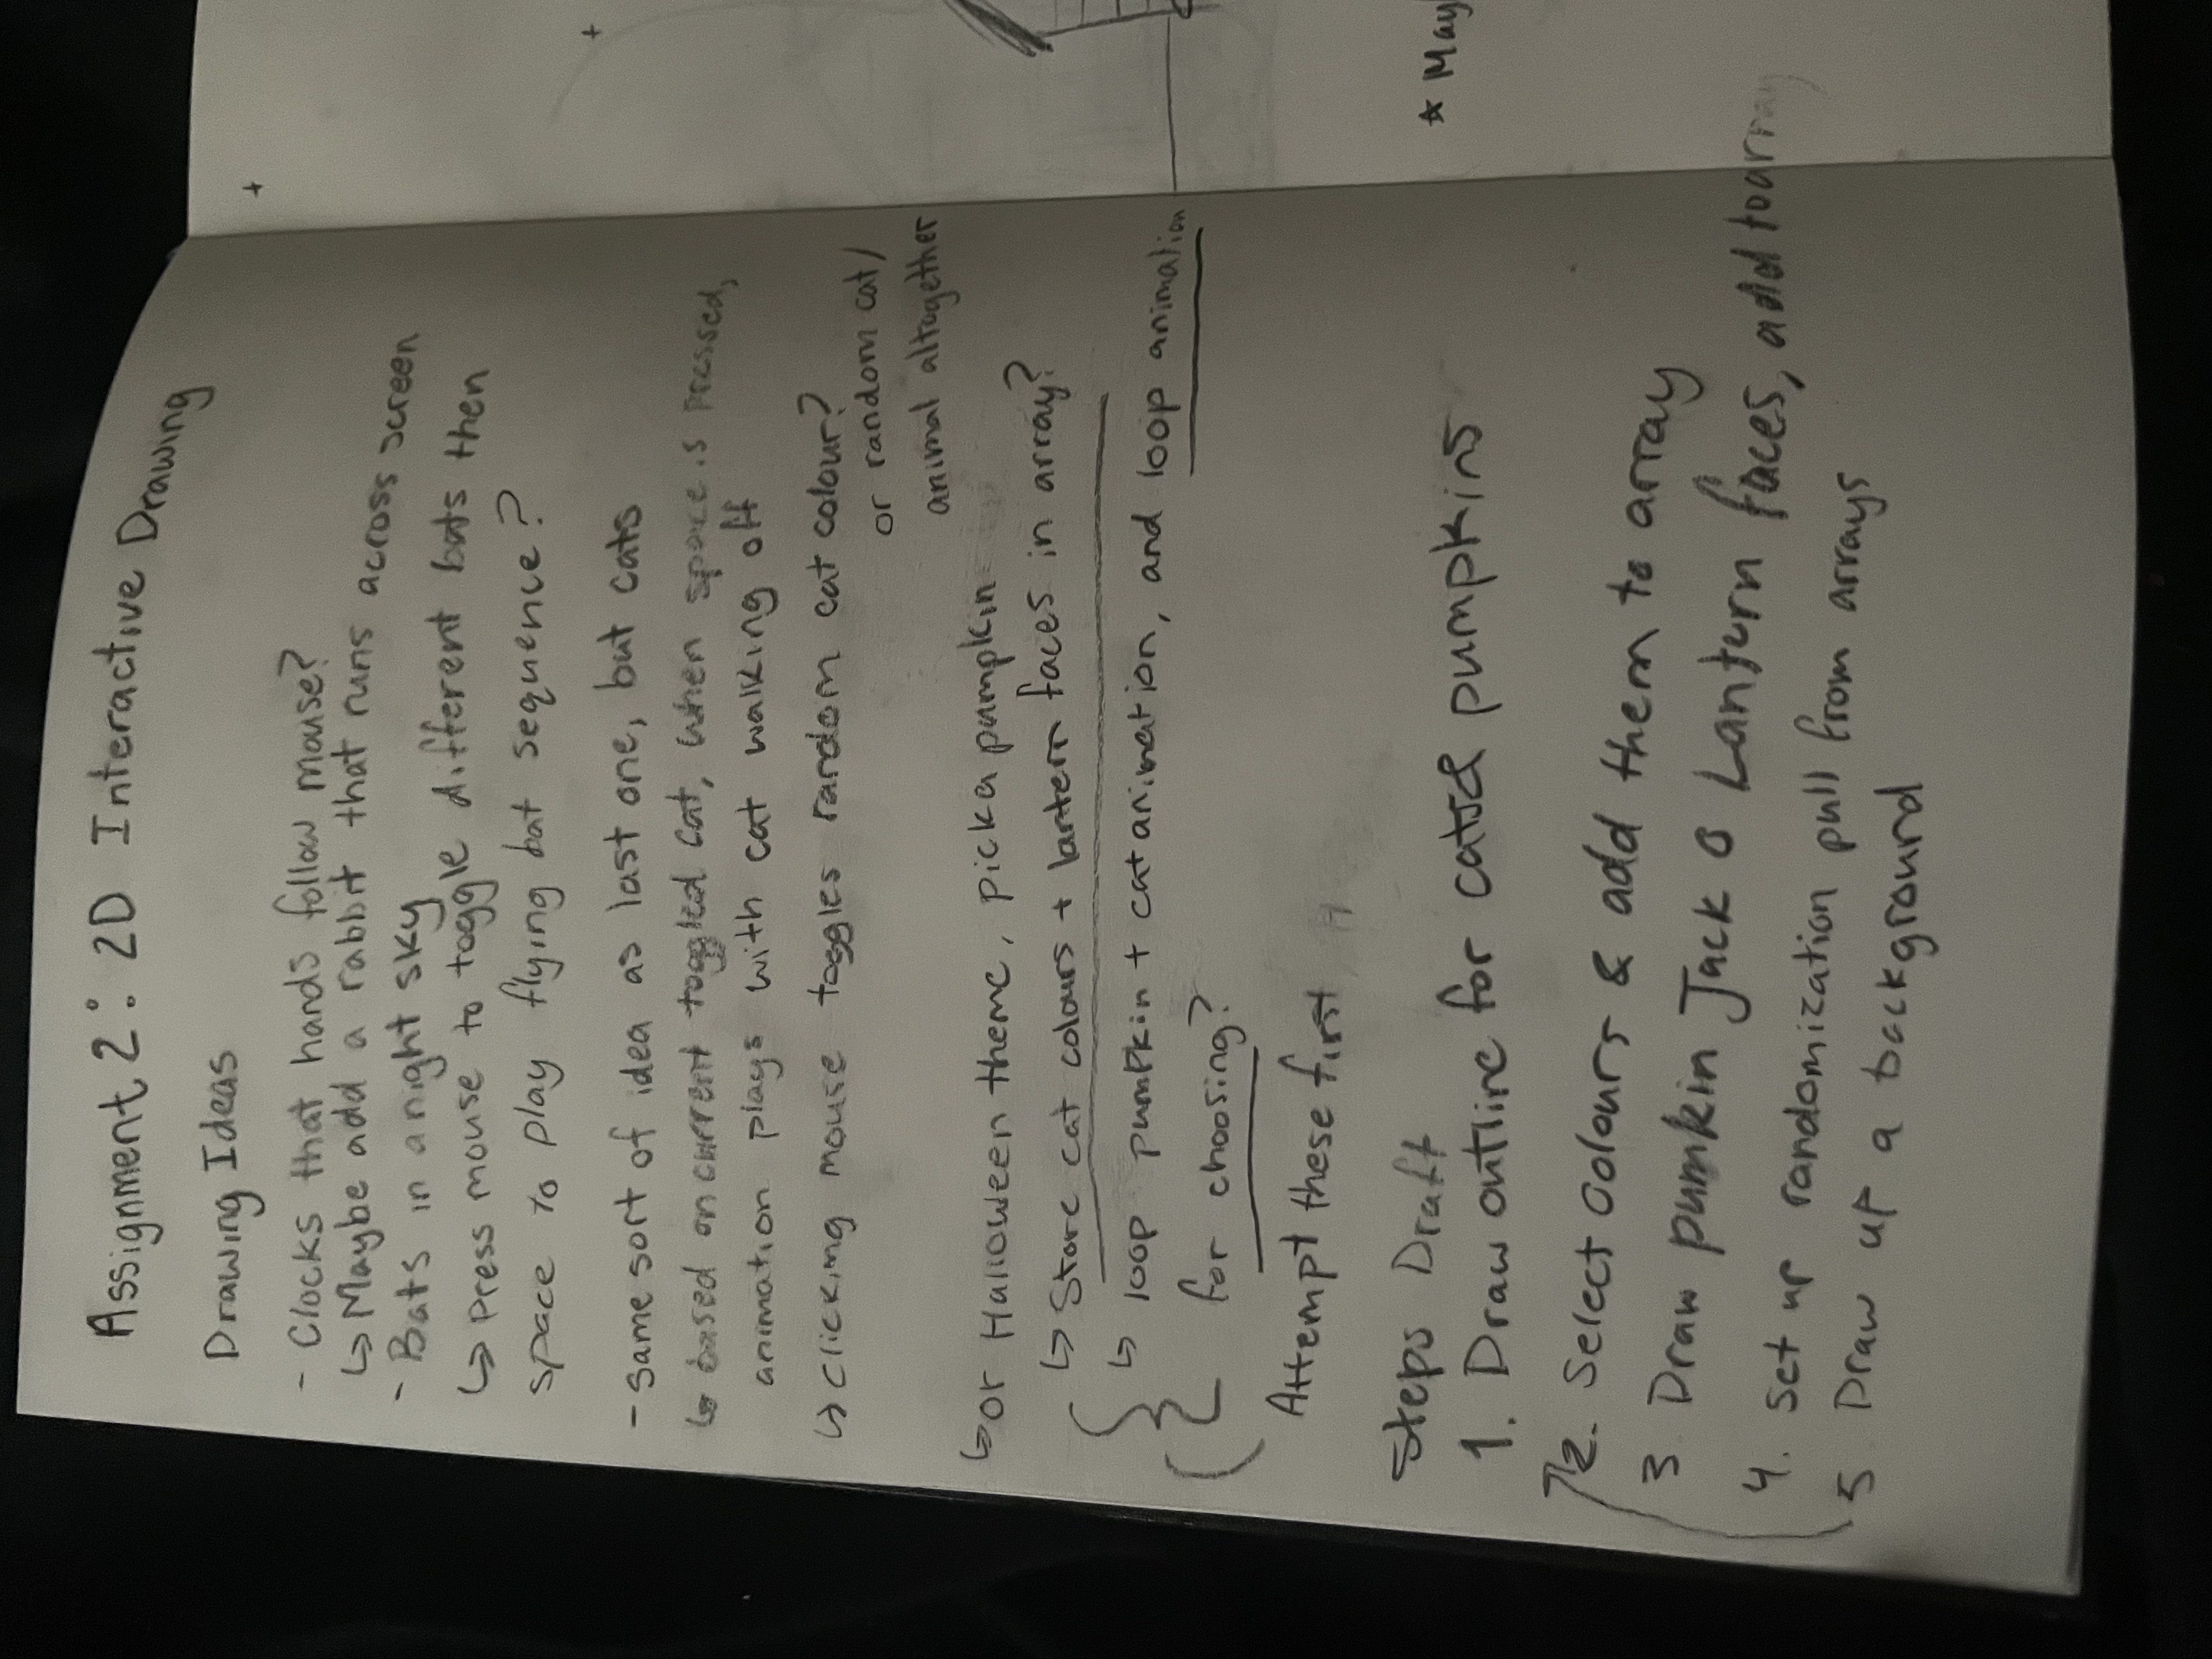 Assignment 2: 2D Interactive Drawing
Drawing Ideas
- Clocks that hands follow mouse?
↳ Maybe add a rabbit that runs across screen
- Bats in a night sky
↳ Press mouse to toggle different bats then
space to play flying bat sequence?
- same sort of idea as last one, but cats
↳ based on current toggled cat, when space is pressed,
animation plays with cat walking off
↳ clicking mouse toggles random cat colour?
or random cat/
animal altogether
↳ or Halloween theme, pick a pumpkin
↳ Store cat colours + lantern faces in array?
↳ loop pumpkin + cat animation, and loop animation
for choosing?
Attempt these first
Steps Draft
1. Draw outline for cats & pumpkins
2. Select colours & add them to array
3 Draw pumkin Jack O Lanturn faces, add to array
4. set up randomization pull from arrays
5 Draw up a background
☆ May